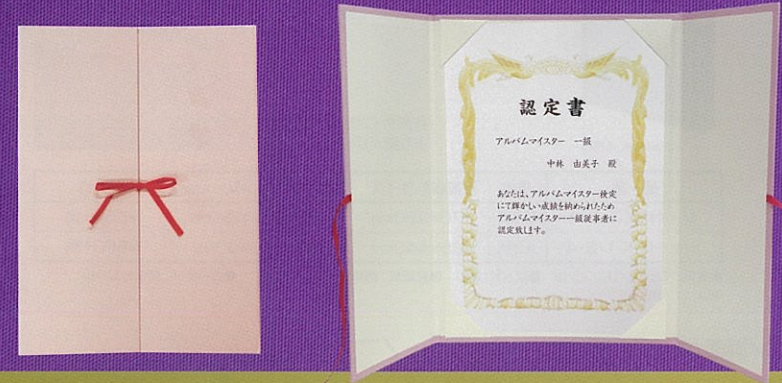 認定書
アルバムマイスター　一級
中林　由美子　殿
あなたは、アルバムマイスター検定
にて輝かしい成績を納められたため
アルバムマイスター一級従事者に
認定致します。